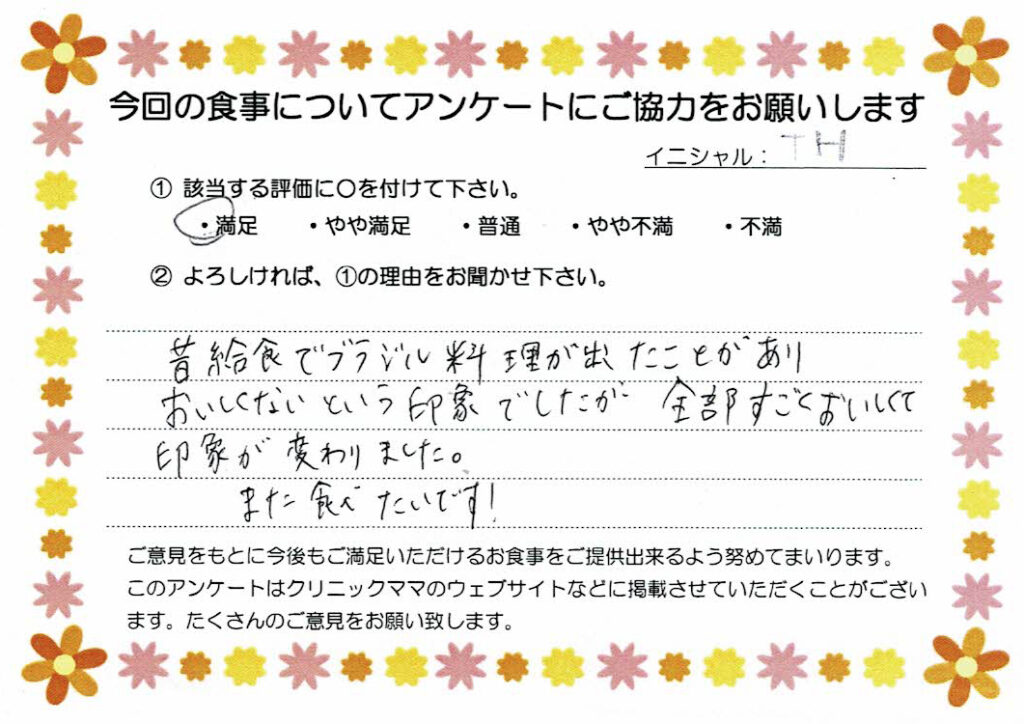 今回の食事についてアンケートにご協力をお願いします
イニシャル： TH
① 該当する評価に〇を付けて下さい。
・満足 ・やや満足 ・普通 ・やや不満 ・不満
② よろしければ、①の理由をお聞かせ下さい。
昔給食でブラジル料理が出たことがあり
おいしくないという印象でしたが 全部すごくおいしくて
印象が変わりました。
また食べたいです!
ご意見をもとに今後もご満足いただけるお食事をご提供出来るよう努めてまいります。
このアンケートはクリニックママのウェブサイトなどに掲載させていただくことがござい
ます。たくさんのご意見をお願い致します。